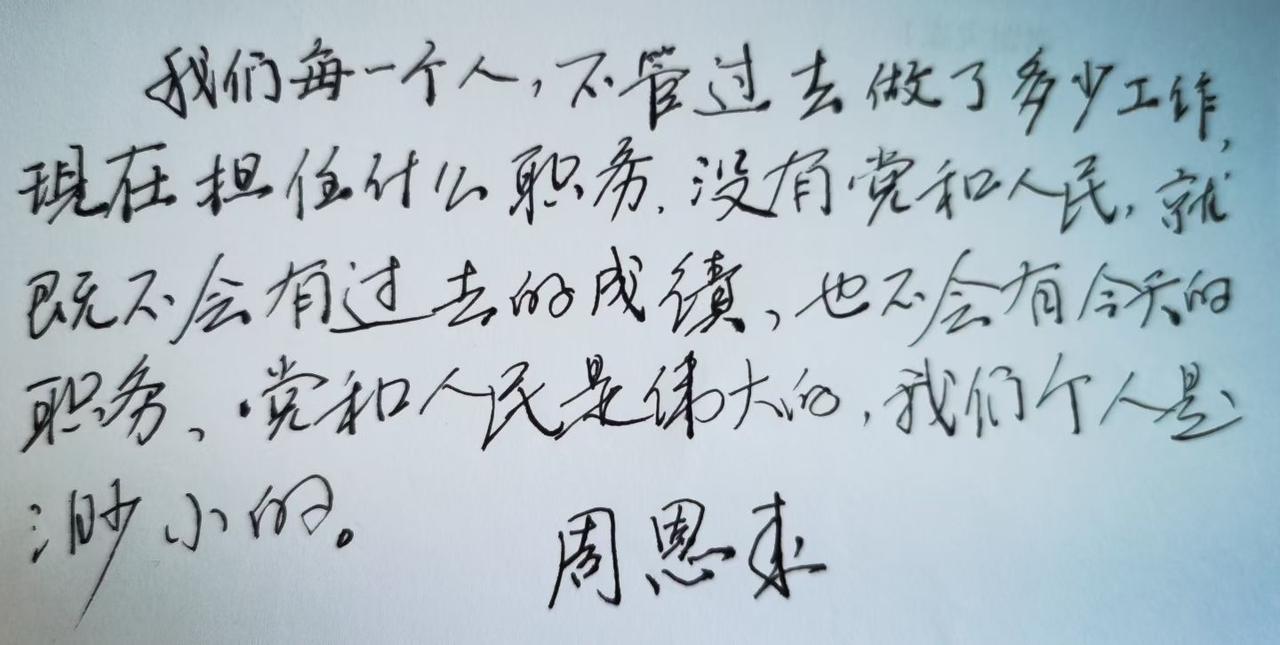 我们每一个人,不管过去做了多少工作,
现在担任什么职务,没有党和人民,就
既不会有过去的成绩、也不会有今天的
职务、党和人民是伟大的,我们个人是
渺小的。
周恩来